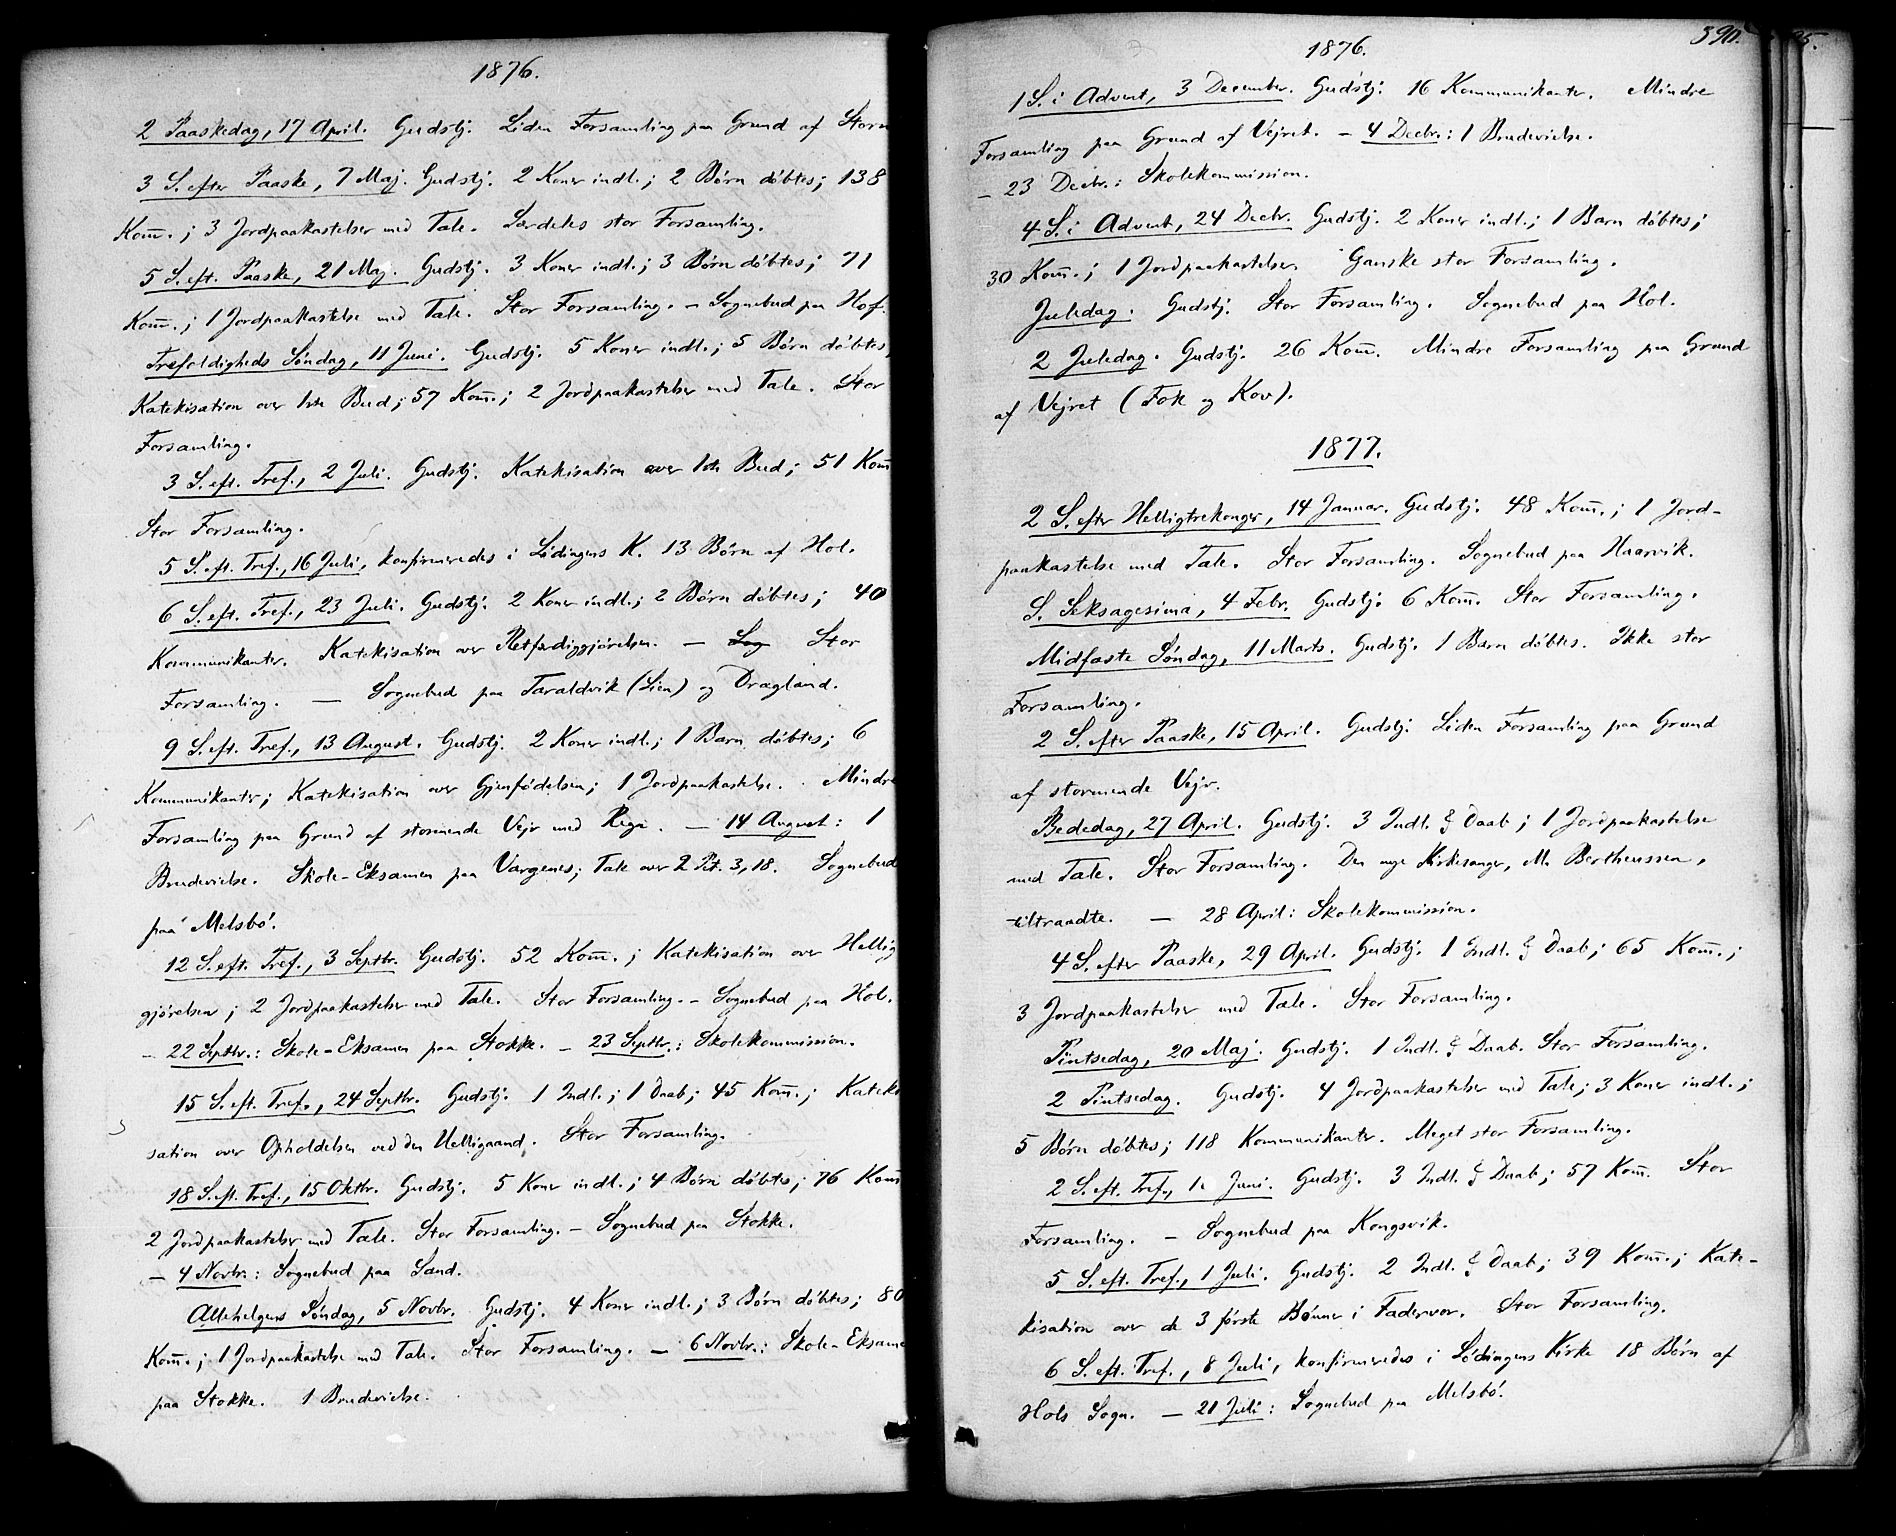 1876.
2 Paaskedag, 17 April. Gudstj. Liden Forsamling paa Grund af Storm
3 S. efter Paaske, 7 Maj. Gudstj. 2 Koner indl.; 2 Børn døbtes; 138
Kom̄.; 3 Jordpaakastelser med Tale. Særdeles stor Forsamling.
5 S. eft. Paaske, 21 Maj. Gudstj. 3 Koner indl.; 3 Børn døbtes; 71
Kom̄.; 1 Jordpaakastelse med Tale. Stor Forsamling. – Sognebud paa Hof.
Trefoldigheds Søndag, 11 Juni. Gudstj. 5 Koner indl.; 5 Børn døbtes;
Katekisation over 1ste Bud; 57 Kom̄.; 2 Jordpaakastelser med Tale. Stor
Forsamling.
3 S. eft. Tref., 2 Juli. Gudstj. Katekisation over 1ste Bud; 51 Kom̄
Stor Forsamling.
5 S. eft. Tref., 16 Juli, konfirmeredes i Lødingens K. 13 Børn af Hol.
6 S. eft. Tref., 23 Juli. Gudstj. 2 Koner indl.; 2 Børn døbtes; 40
Kommunikanter. Katekisation over Retfærdiggjørelsen. – Stor
Forsamling. — Sognebud paa Taraldvik (Lien) og Drægland.
9 S. eft. Tref., 13 August. Gudstj. 2 Koner indl.; 1 Barn døbtes; 6
Kommunikanter; Katekisation over Gjenfødelsen; 1 Jordpaakastelse. Mindre
Forsamling paa Grund af stormende Vejr med Regn. – 14 August: 1
Brudevielse. Skole-Eksamen paa Vargenes; Tale over 2 Pet. 3, 18. Sognebud
paa Melsbø.
12 S. eft. Tref., 3 Septbr. Gudstj. 52 Kom̄.; Katekisation over Hellig
gjørelsen; 2 Jordpaakastelser med Tale. Stor Forsamling. – Sognebud paa Hol.
– 22 Septbr.: Skole-Eksamen paa Stokke. – 23 Septbr.: Skolekommission.
15 S. eft. Tref., 24 Septbr. Gudstj. 1 Indl.; 1 Daab; 45 Kom̄.; Kateki
sation over Opholdelsen ved den Helligaand. Stor Forsamling.
18 S. eft. Tref., 15 Oktbr. Gudstj. 5 Koner indl.; 4 Børn døbtes; 76 Kom̄
2 Jordpaakastelser med Tale. Stor Forsamling. – Sognebud paa Stokke.
– 4 Novbr.: Sognebud paa Sand.
Allehelgens Søndag, 5 Novbr. Gudstj. 4 Koner indl.; 3 Børn døbtes; 80
Kom̄.; 1 Jordpaakastelse med Tale. Stor Forsamling. – 6 Novbr.: Skole-Eksame
paa Stokke. 1 Brudevielse.
390.
1876.
1 S. i Advent, 3 December. Gudstj. 16 Kommunikanter. Mindre
Forsamling paa Grund af Vejret. – 4 Decbr.: 1 Brudevielse.
– 23 Decbr.: Skolekommission.
4 S. i Advent, 24 Decbr. Gudstj. 2 Koner indl.; 1 Barn døbtes;
30 Kom̄.; 1 Jordpaakastelse. Ganske stor Forsamling.
Juledag. Gudstj. Stor Forsamling. Sognebud paa Hol.
2 Juledag. Gudstj. 26 Kom̄. Mindre Forsamling paa Grund
af Vejret (Fok og Kov).
1877.
2 S. efter Helligtrekonger, 14 Januar. Gudstj. 48 Kom̄.; 1 Jord-
paakastelse med Tale. Stor Forsamling. Sognebud paa Haarvik.
S. Seksagesima, 4 Febr. Gudstj. 6 Kom̄. Stor Forsamling.
Midfaste Søndag, 11 Marts. Gudstj. 1 Barn døbtes. Ikke stor
Forsamling.
2 S. efter Paaske, 15 April. Gudstj. Liden Forsamling paa Grund
af stormende Vejr.
Bededag, 27 April. Gudstj. 3 Indl. & Daab; 1 Jordpaakastelse
med Tale. Stor Forsamling. Den nye Kirkesanger, M. Bertheussen,
tiltraadte. – 28 April: Skolekommission.
4 S. efter Paaske, 29 April. Gudstj. 1 Indl. & Daab; 65 Kom̄.;
3 Jordpaakastelser med Tale. Stor Forsamling.
Pintsedag, 20 Maj. Gudstj. 1 Indl. & Daab. Stor Forsamling.
2 Pintsedag. Gudstj. 4 Jordpaakastelser med Tale; 3 Koner indl.;
5 Børn døbtes; 118 Kommunikanter. Meget stor Forsamling.
2 S. eft. Tref., Juni. Gudstj. 3 Indl. & Daab; 57 Kom̄. Stor
Forsamling. – Sognebud paa Kongsvik.
5 S. eft. Tref., 1 Juli. Gudstj. 2 Indl. & Daab; 39 Kom̄.; Kate-
kisation over de 3 første Bønner i Fadervor. Stor Forsamling.
6 S. eft. Tref., 8 Juli, konfirmeredes i Lødingens Kirke 18 Børn af
Hols Sogn. – 21 Juli: Sognebud paa Melsbø.